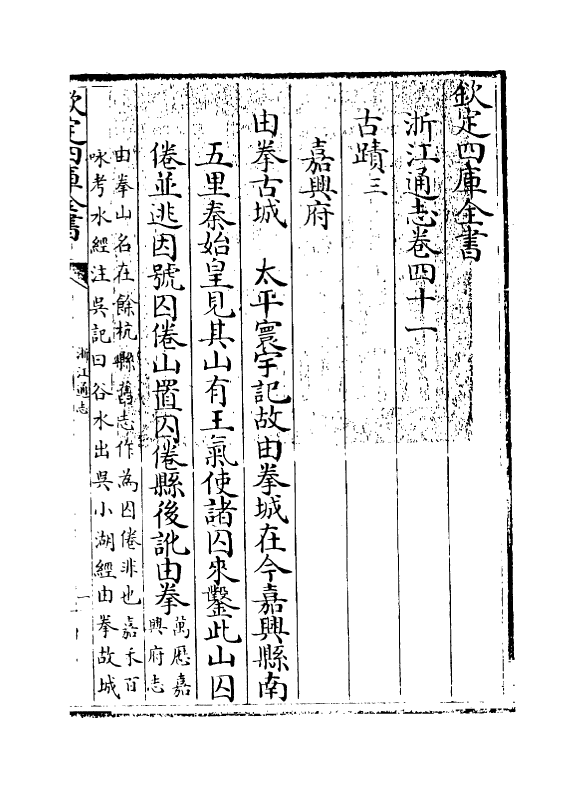 欽定四庫全書
浙江通志卷四十一
古蹟三
嘉興府
由拳古城　太平寰宇記故由拳城在今嘉興縣南
五里秦始皇見其山有王氣使諸囚來鑿此山囚
倦並逃因號囚倦山置囚倦縣後訛由拳
萬歷嘉
興府志
由拳山名在餘杭縣舊志作為囚倦非也嘉禾百
咏考水經注吳記曰谷水出吳小湖經由拳故城
欽定四庫全書
浙江通志
一